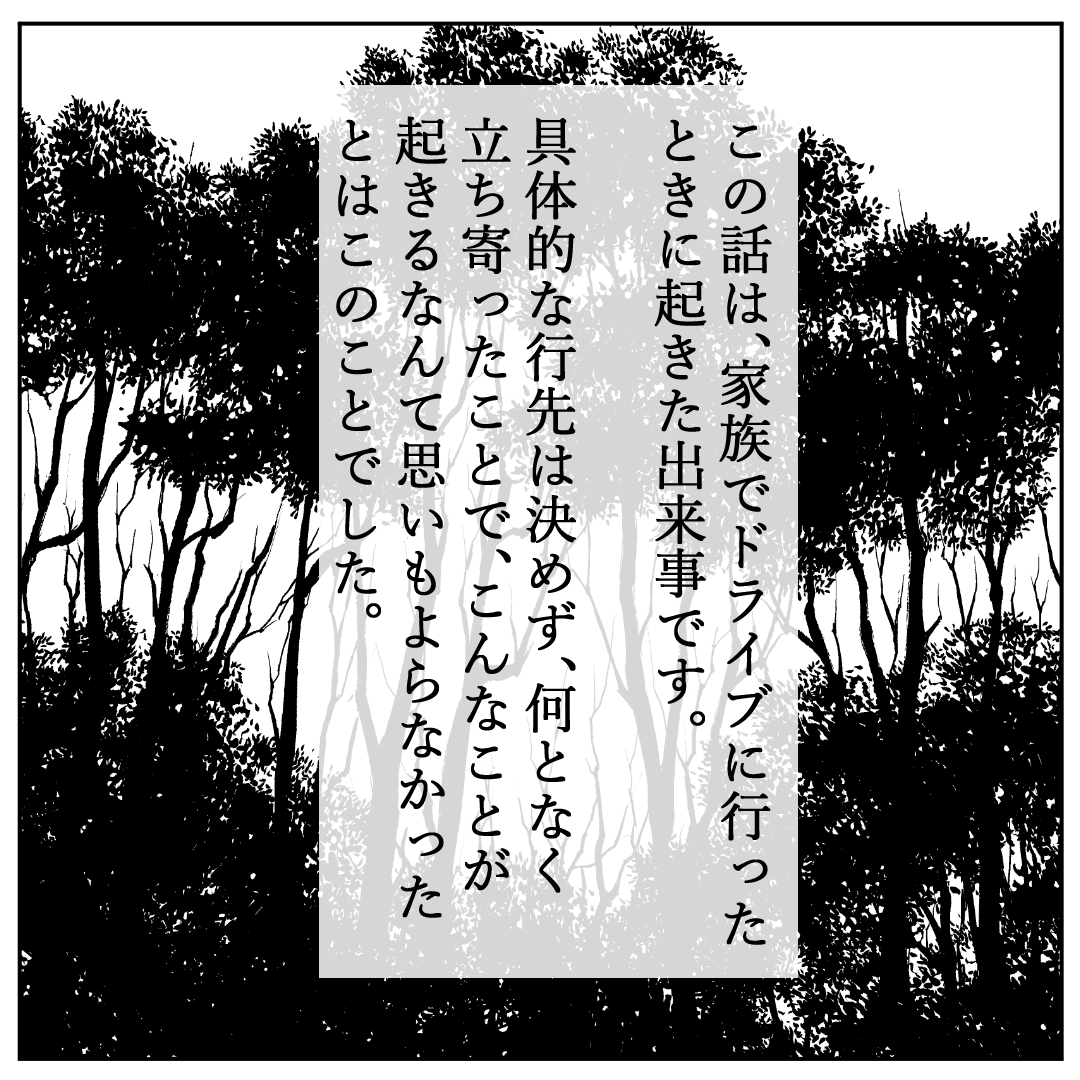 この話は、家族でドライブに行った
ときに起きた出来事です。
具体的な行先は決めず、何となく
立ち寄ったことで、こんなことが
起きるなんて思いもよらなかった
とはこのことでした。